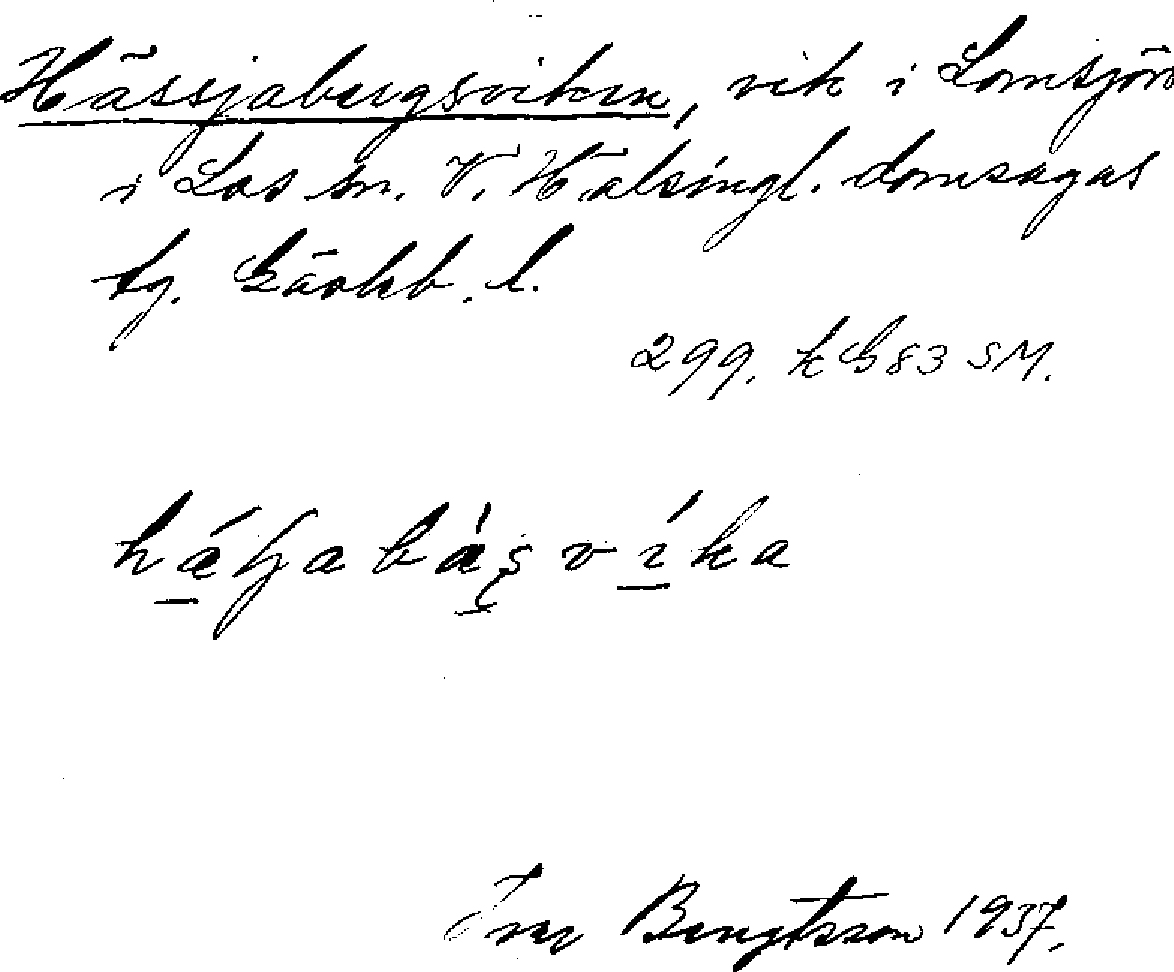 Hässjabergsviken, vik i Lomsjön
i Los sn. V. Hälsingl. domsagas
tg. Gävleb. l.
299. k G 83 SM.
vika
Ivar Bengtsson 1937.